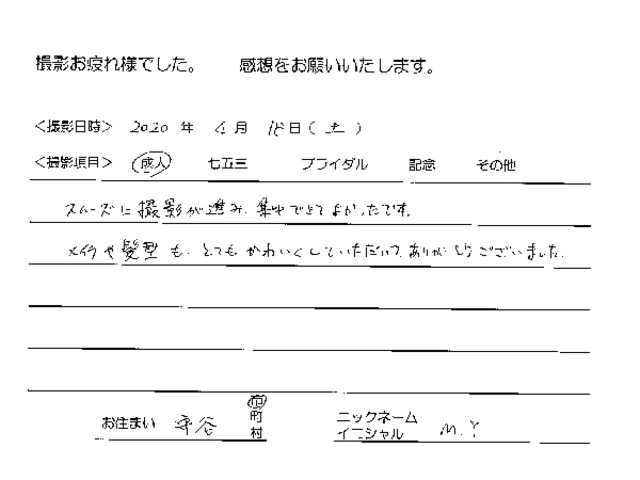 撮影お疲れ様でした。 感想をお願いいたします。
<撮影日時> 2020 年 4 月 18 日 ( 土 )
<撮影項目> 成人 七五三 ブライダル 記念 その他
スムーズに撮影が進み、集中できてよかったです。
メイクや髪型も、とてもかわいくしていただいて、ありがとうございました。
お住まい 守谷 市 町 村 ニックネーム イニシャル M.Y